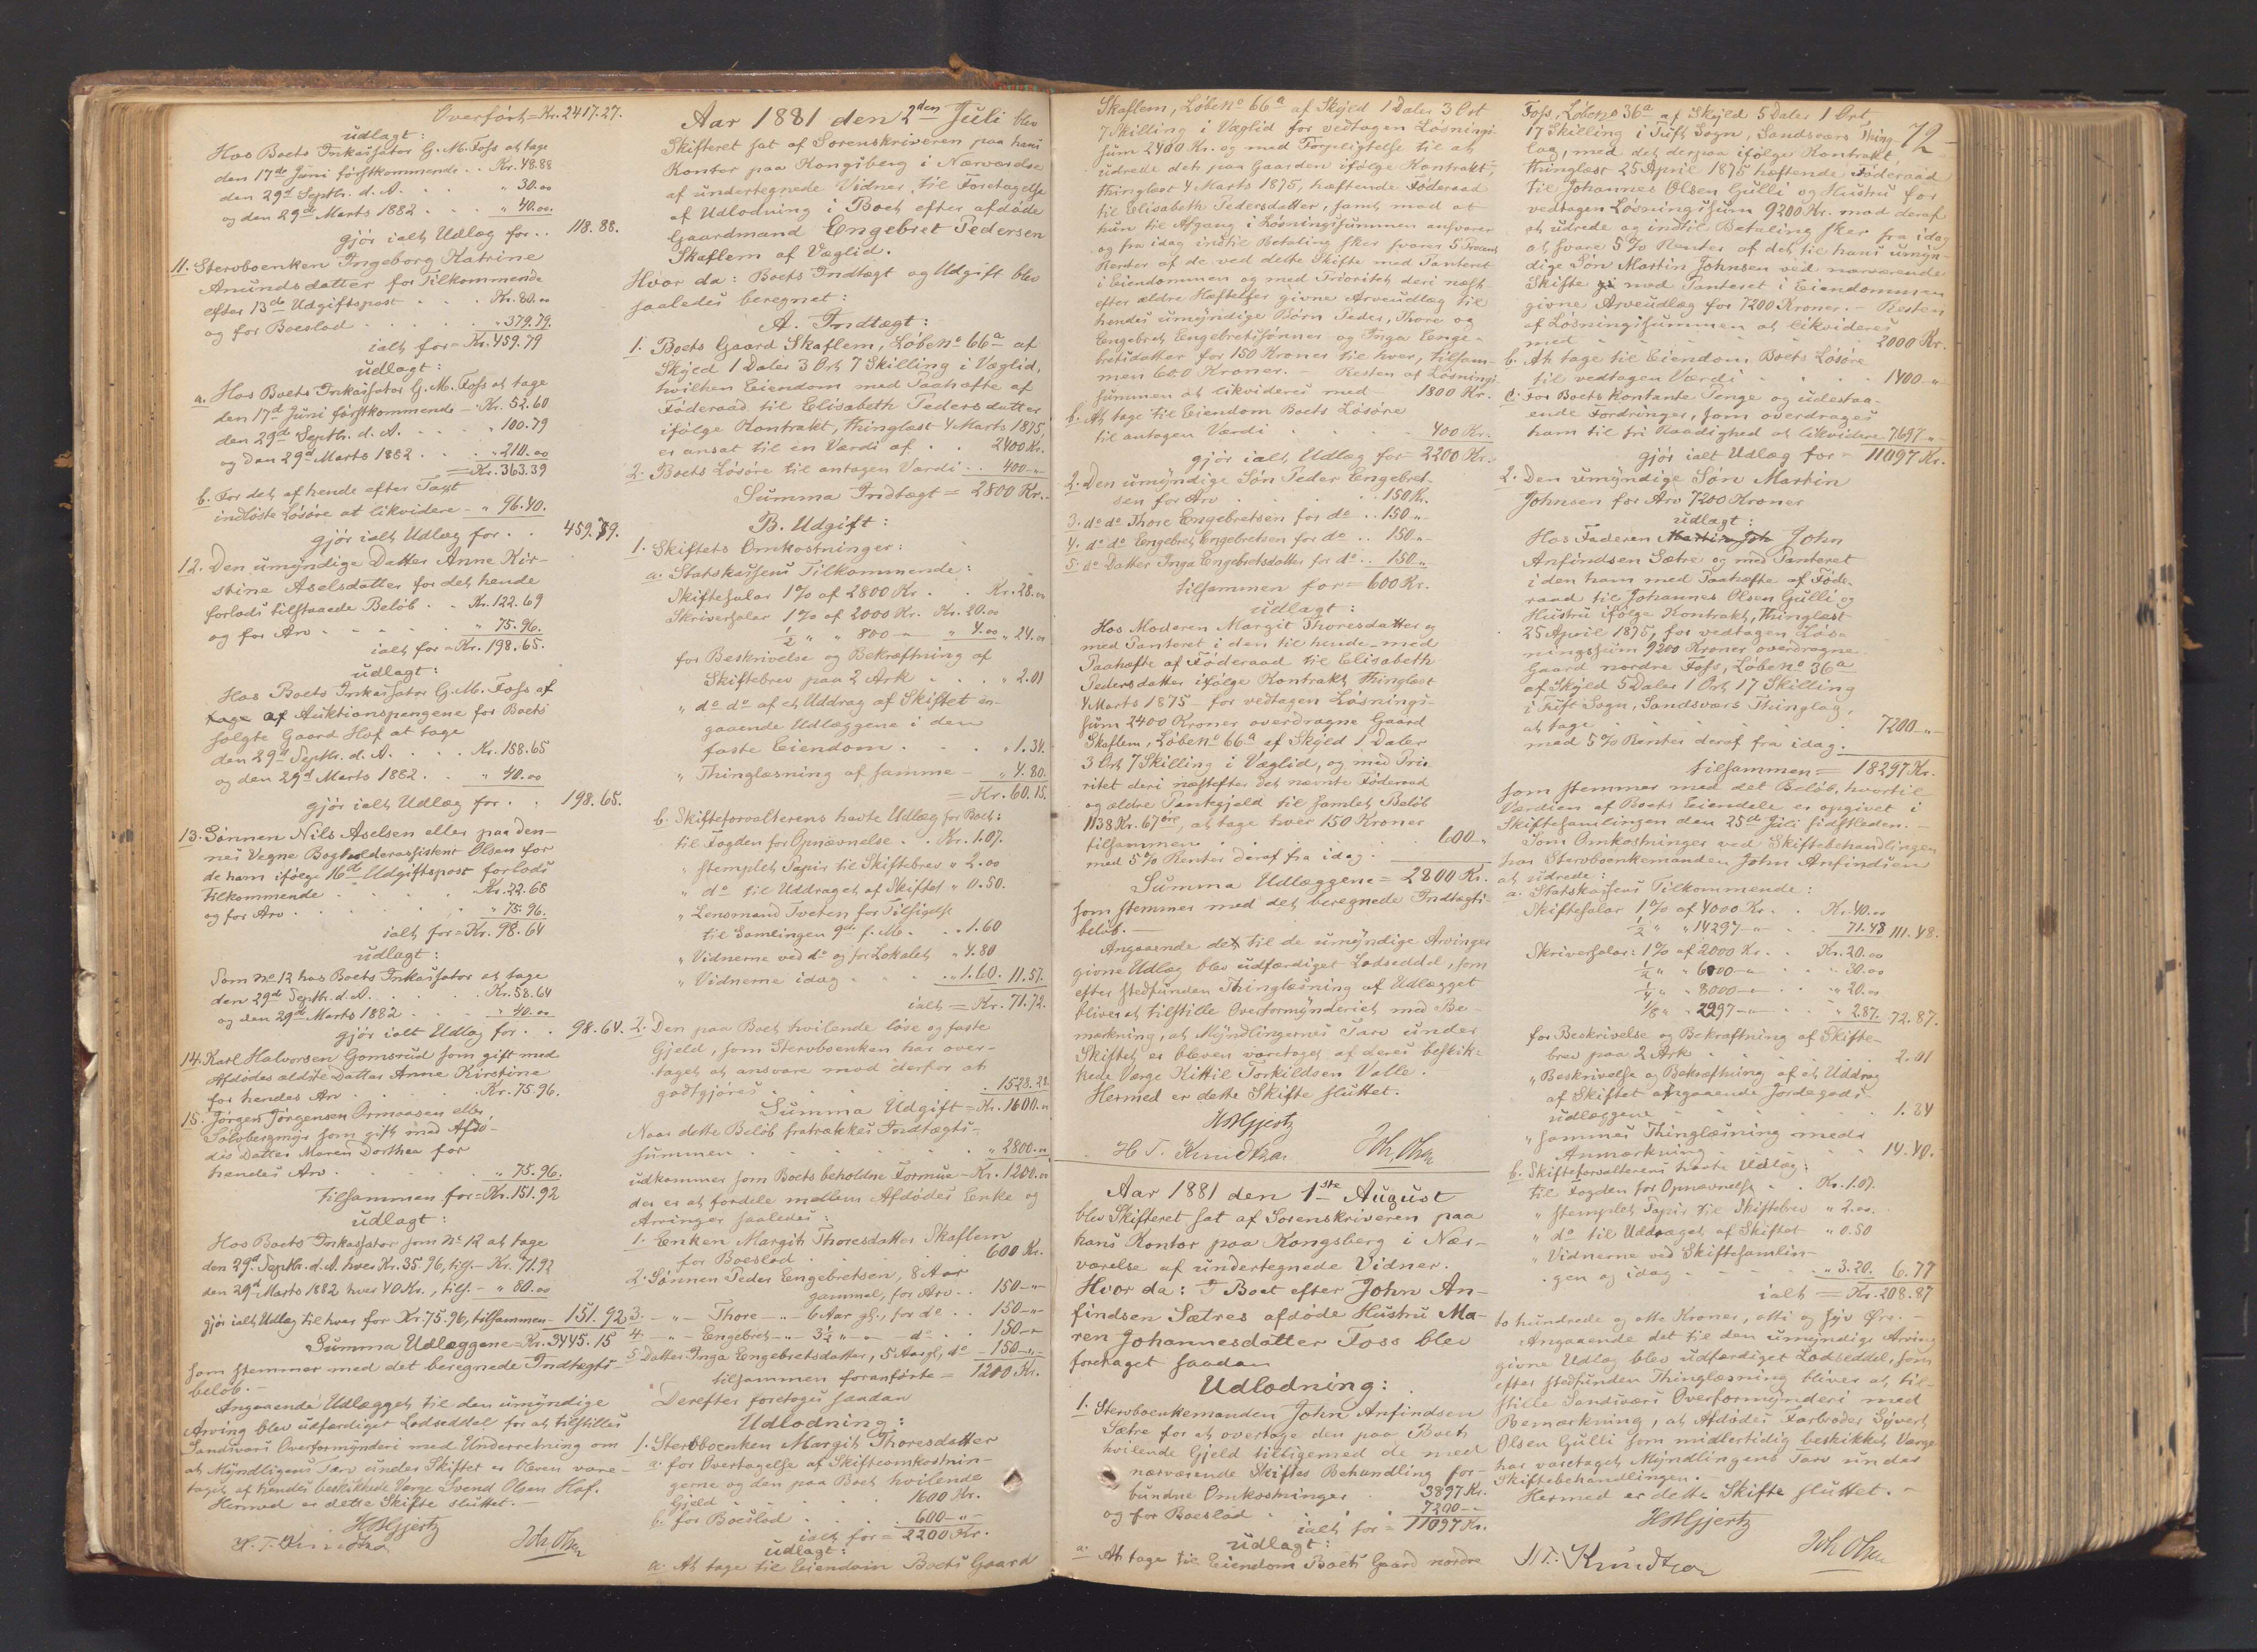 Overført = Kr. 2417.27.
udlagt:
Hos Boets Inkassator G. M. Foss at tage
den 17de Juni førstkommende . . Kr. 48.88
den 29d Septbr. d. A. . . . " 30.00
og den 29d Marts 1882 . . . " 40.00.
gjør ialt Udlæg for . . 118.88.
11. Stervboenken Ingeborg Katrine
Amundsdatter for Tilkommende
efter 13de Udgiftspost . . . Kr. 80.00
og for Boeslod . . . . . " 379.79.
ialt for = Kr. 459.79
udlagt:
a. Hos Boets Inkassator G. M. Foss at tage
den 17d Juni førstkommende - Kr. 52.60
den 29d Septbr. d. A. . . . " 100.79
og den 29d Marts 1882 . . . " 210.00
= Kr. 363.39
b. For det af hende efter Taxt
indløste Løsøre at likvidere - " 96.40.
gjør ialt Udlæg for . . 459.79.
12. Den umyndige Datter Anne Kir-
stine Aselsdatter for det hende
forlods tilstaaede Beløb . . Kr. 122.69
og for Arv . . . . . " 75.96.
ialt for = Kr. 198.65.
udlagt:
Hos Boets Inkassator G. M. Foss af
tage af Auktionspengene for Boets
solgte Gaard Hof at tage
den 29d Septbr. d. A. . . . Kr. 158.65
og den 29d Marts 1882 . . " 40.00
gjør ialt Udlæg for . . 198.65.
13. Sønnen Nils Aselsen eller paa den-
nes Vegne Bogholderassistent Olsen for
de ham ifølge 16de Udgiftspost forlods
Tilkommende . . . . Kr. 22.68
og for Arv . . . . . " 75.96.
ialt for = Kr. 98.64
udlagt:
Som No 12 hos Boets Inkassator at tage
den 29d Septbr. d. A. . . . . Kr. 58.64
og den 29d Marts 1882 . . . " 40.00
gjør ialt Udlæg for . . 98.64.
14. Karl Halvorsen Gomsrud som gift med
Afdødes ældste Datter Anne Kirstine
for hendes Arv . . . . Kr. 75.96.
15. Jørgen Jørgensen Ormaasen eller
Sølvbergmyr som gift med Afdø-
des Datter Maren Dorthea for
hendes Arv . . . . . " 75.96.
tilsammen for = Kr. 151.92
udlagt:
Hos Boets Inkassator som No 12 at tage
den 29d Septbr. d. A. hver Kr. 35.96, tils. - Kr. 71.92
den 29d Marts 1882 hver 40 Kr., tils. - " 80.00
gjør ialt Udlæg til hver for Kr. 75.96, tilsammen - 151.92
Summa Udlæggene = Kr. 3445.15
som stemmer med det beregnede Indtægts-
beløb. -
Angaaende Udlægget til den umyndige
Arving blev udfærdiget Lodseddel for at tilstilles
Sandsværs Overformynderi med Underretning om
at Myndligens Tarv under Skiftet er bleven vare-
taget af hendes beskikkede Værge Svend Olsen Hof.
Hermed er dette Skifte sluttet. -
H Mgjertz
H. T. Knudtzon Joh. Olsen
Aar 1881 den 2den Juli blev
Skifteret sat af Sorenskriveren paa hans
Kontor paa Kongsberg i Nærværelse
af undertegnede Vidner, til Foretagelse
af Udlodning i Boet efter afdøde
Gaardmand Engebret Pedersen
Skaflem af Væglid.
Hvor da: Boets Indtægt og Udgift blev
saaledes beregnet:
A. Indtægt:
1. Boets Gaard Skaflem, Løbeno 66a af
Skyld 1 Daler 3 Ort 7 Skilling i Væglid,
hvilken Eiendom med Paahæfte af
Føderaad til Elisabeth Pedersdatter
ifølge Kontrakt, thinglæst 4 Marts 1875,
er ansat til en Værdi af . . 2400 Kr.
2. Boets Løsøre til antagen Værdi . . 400 - "
Summa Indtægt = 2800 Kr.
B. Udgift:
1. Skiftets Omkostninger:
a. Statskassens Tilkommende:
Skiftesalær 1% af 2800 Kr. . . Kr. 28.00
Skriversalær 1% af 2000 Kr. Kr. 20.00
1/2 " " 800 - " " 4.00 " 24.00
for Beskrivelse og Bekræftning af
Skiftebrev paa 2 Ark . . . " 2.01
" do do af et Uddrag af Skiftet an-
gaaende Udlæggene i den
faste Eiendom . . . . " 1.34.
" Thinglæsning af samme - " 4.80.
= Kr. 60.15.
b. Skifteforvalterens havte Udlæg for Boet:
til Fogden for Opnævnelse . . Kr. 1.07.
" stemplet Papir til Skiftebrev " 2.00
" do til Uddraget af Skiftet " 0.50.
" Lensmand Tveten for Tilsigelse
til Samlingen 9de f. M. . . . 1.60
" Vidnerne ved do og for Lokalet " 4.80
" Vidnerne idag . . . . " 1.60. 11.57.
ialt = Kr. 71.72.
2. Den paa Boet hvilende løse og faste
Gjeld, som Stervboenken har over-
taget at ansvare mod derfor at
godtgjøres . . . . . . . 1528.28
Summa Udgift = Kr. 1600.00
Naar dette Beløb fratrækkes Indtægts-
summen . . . . . . . " 2800.00
udkommer som Boets beholdne Formue - Kr. 1200.00
der er at fordele mellem Afdødes Enke og
Arvinger saaledes:
1. Enken Margit Thoresdatter Skaflem
for Boeslod . . . . . . 600 Kr.
2. Sønnen Peder Engebretsen, 8 Aar
gammel, for Arv . . 150 - "
3. - " - Thore - " - 6 Aar gl., for do . . 150 - "
4. - " - Engebret - " - 3 1/2 " - " - do . . 150 - "
5. Datter Inga Engebretsdatter, 5 Aar gl., do - 150 - "
tilsammen foranførte = 1200 Kr.
Derefter foretoges saadan
Udlodning:
1. Stervboenken Margit Thoresdatter
a. for Overtagelse af Skifteomkostnin-
gerne og den paa Boet hvilende
Gjeld . . . . . . 1600 Kr.
b. for Boeslod . . . . . 600 - "
ialt for = 2200 Kr.
udlagt:
a. At tage til Eiendom Boets Gaard
Skaflem, Løbeno 66a af Skyld 1 Daler 3 Ort
7 Skilling i Væglid for vedtagen Løsnings-
sum 2400 Kr. og med Forpligtelse til at
udrede det paa Gaarden ifølge Kontrakt,
thinglæst 4 Marts 1875, hæftende Føderaad
til Elisabeth Pedersdatter, samt mod at
hun til Afgang i Løsningssummen ansvarer
og fra idag indtil Betaling sker svarer 5 Procent
Renter af de ved dette Skifte med Panteret
i Eiendommen og med Prioritet deri næst
efter ældre Hæftelser givne Arveudlæg til
hendes umyndige Børn Peder, Thore og
Engebret Engebretssønner og Inga Enge-
bretsdatter for 150 Kroner til hver, tilsam-
men 600 Kroner. - Resten af Løsnings-
summen at likvideres med - 1800 Kr.
b. At tage til Eiendom Boets Løsøre
til antagen Værdi . . . . 400 Kr.
gjør ialt Udlæg for - 2200 Kr.
2. Den umyndige Søn Peder Engebret-
sen for Arv . . . . . 150 K.
3. do do Thore Engebretsen for do . . 150 - "
4. do do Engebret Engebretsen for do . . 150 - "
5. do Datter Inga Engebretsdatter for do . . 150 - "
tilsammen for = 600 Kr.
udlagt:
Hos Moderen Margit Thoresdatter og
med Panteret i den til hende med
Paahæfte af Føderaad til Elisabeth
Pedersdatter ifølge Kontrakt thinglæst
4 Marts 1875 - for vedtagen Løsnings-
sum 2400 Kroner overdragne Gaard
Skaflem, Løbeno 66a af Skyld 1 Daler
3 Ort 7 Skilling i Væglid, og med Prio-
ritet deri næstefter det nævnte Føderaad
og ældre Pantegjeld til samlet Beløb
1138 Kr. 67 øre, at tage hver 150 Kroner
tilsammen . . . . . . . 600 - "
med 5% Renter deraf fra idag.
Summa Udlæggene = 2800 Kr.
som stemmer med det beregnede Indtægts-
beløb. -
Angaaende det til de umyndige Arvinger
givne Udlæg blev udfærdiget Lodseddel, som
efter stedfunden Thinglæsning af Udlægget
bliver at tilstille Overformynderiet med Be-
mærkning, at Myndlingernes Tarv under
Skiftet er bleven varetaget af deres beskik-
kede Værge Kittil Torkildsen Valle. -
Hermed er dette Skifte sluttet.
H Mgjertz
H. T. Knudtzon Joh. Olsen
Aar 1881 den 1ste August
blev Skifteret sat af Sorenskriveren paa
hans Kontor paa Kongsberg i Nær-
værelse af undertegnede Vidner.
Hvor da: I Boet efter John An-
findsen Sætres afdøde Hustru Ma-
ren Johannesdatter Foss blev
foretaget saadan
Udlodning:
1. Stervboenkemanden John Anfindsen
Sætre for at overtage den paa Boet
hvilende Gjeld tilligemed de med
nærværende Skiftes Behandling for-
bundne Omkostninger . 3897 Kr.
og for Boeslod . . . . 7200 - "
ialt for = 11097 Kr.
udlagt:
a. At tage til Eiendom Boets Gaard nordre
72
Foss, Løbeno 36a af Skyld 5 Daler 1 Ort
17 Skilling i Tuft Sogn, Sandsværs Thing-
lag, med det derpaa ifølge Kontrakt,
thinglæst 25 April 1875 hæftende Føderaad
til Johannes Olsen Gulli og Hustru for
vedtagen Løsningssum 9200 Kr. mod deraf
at udrede og indtil Betaling sker fra idag
at svare 5% Renter af det til hans umyn-
dige Søn Martin Johnsen ved nærværende
Skifte med Panteret i Eiendommen
givne Arveudlæg for 7200 Kroner. - Resten
af Løsningssummen at likvideres
med " " " " 2000 Kr.
b. At tage til Eiendom Boets Løsøre
til vedtagen Værdi . . . . 1400 - "
c. For Boets kontante Penge og udestaa-
ende Fordringer, som overdrages
ham til fri Raadighed at likvidere - 7697 - "
gjør ialt Udlæg for - 11097 Kr.
2. Den umyndige Søn Martin
Johnsen for Arv 7200 Kroner
udlagt:
Hos Faderen Martin Joh John
Anfindsen Sætre og med Panteret
i den ham med Paahæfte af Føde-
raad til Johannes Olsen Gulli og
Hustru ifølge Kontrakt, thinglæst
25 April 1875, for vedtagen Løs-
ningssum 9200 Kroner overdragne
Gaard nordre Foss, Løbeno 36a
af Skyld 5 Daler 1 Ort 17 Skilling
i Tuft Sogn, Sandsværs Thinglag,
at tage . . . . . . . 7200 - "
med 5% Renter deraf fra idag.
tilsammen = 18297 Kr.
som stemmer med det Beløb, hvortil
Værdien af Boets Eiendele er opgivet i
Skiftesamlingen den 25de Juli sidstleden. -
Som Omkostninger ved Skiftebehandlingen
har Stervboenkemanden John Anfindsen
at udrede:
a. Statskassens Tilkommende:
Skiftesalær 1% af 4000 Kr. . . Kr. 40.00
1/2 " " 14297 - " . . 71.48 111.48.
Skriversalær: 1% af 2000 Kr. . . Kr. 20.00
1/2 " " 6000 - " . . " 30.00
1/4 " " 8000 - " . . " 20.00
1/8 " " 2297 - " . . " 2.87. 72.87.
for Beskrivelse og Bekræftning af Skifte-
brev paa 2 Ark . . . . . . 2.01
" Beskrivelse og Bekræftning af et Uddrag
af Skiftet angaaende Jordegods-
udlæggene . . . . . . 1.34
" sammes Thinglæsning med
Anmærkning . . . . . . 14.40.
b. Skifteforvalterens havte Udlæg:
til Fogden for Opnævnelse . . Kr. 1.07.
" stemplet Papir til Skiftebrev " 2.00.
" do til Uddraget af Skiftet " 0.50
" Vidnerne ved Skiftesamlin-
gen og idag . . . . " 3.20. 6.77
ialt = Kr. 208.87
to hundrede og otte Kroner, otti og syv Øre. -
Angaaende det til den umyndige Arving
givne Udlæg blev udfærdiget Lodseddel, som
efter stedfunden Thinglæsning bliver at til-
stille Sandsværs Overformynderi med
Bemærkning, at Afdødes Farbroder Syvert
Olsen Gulli som midlertidig beskikket Værge
har varetaget Myndlingens Tarv under
Skiftebehandlingen.
Hermed er dette Skifte sluttet. -
H Mgjertz
H. T. Knudtzon Joh. Olsen